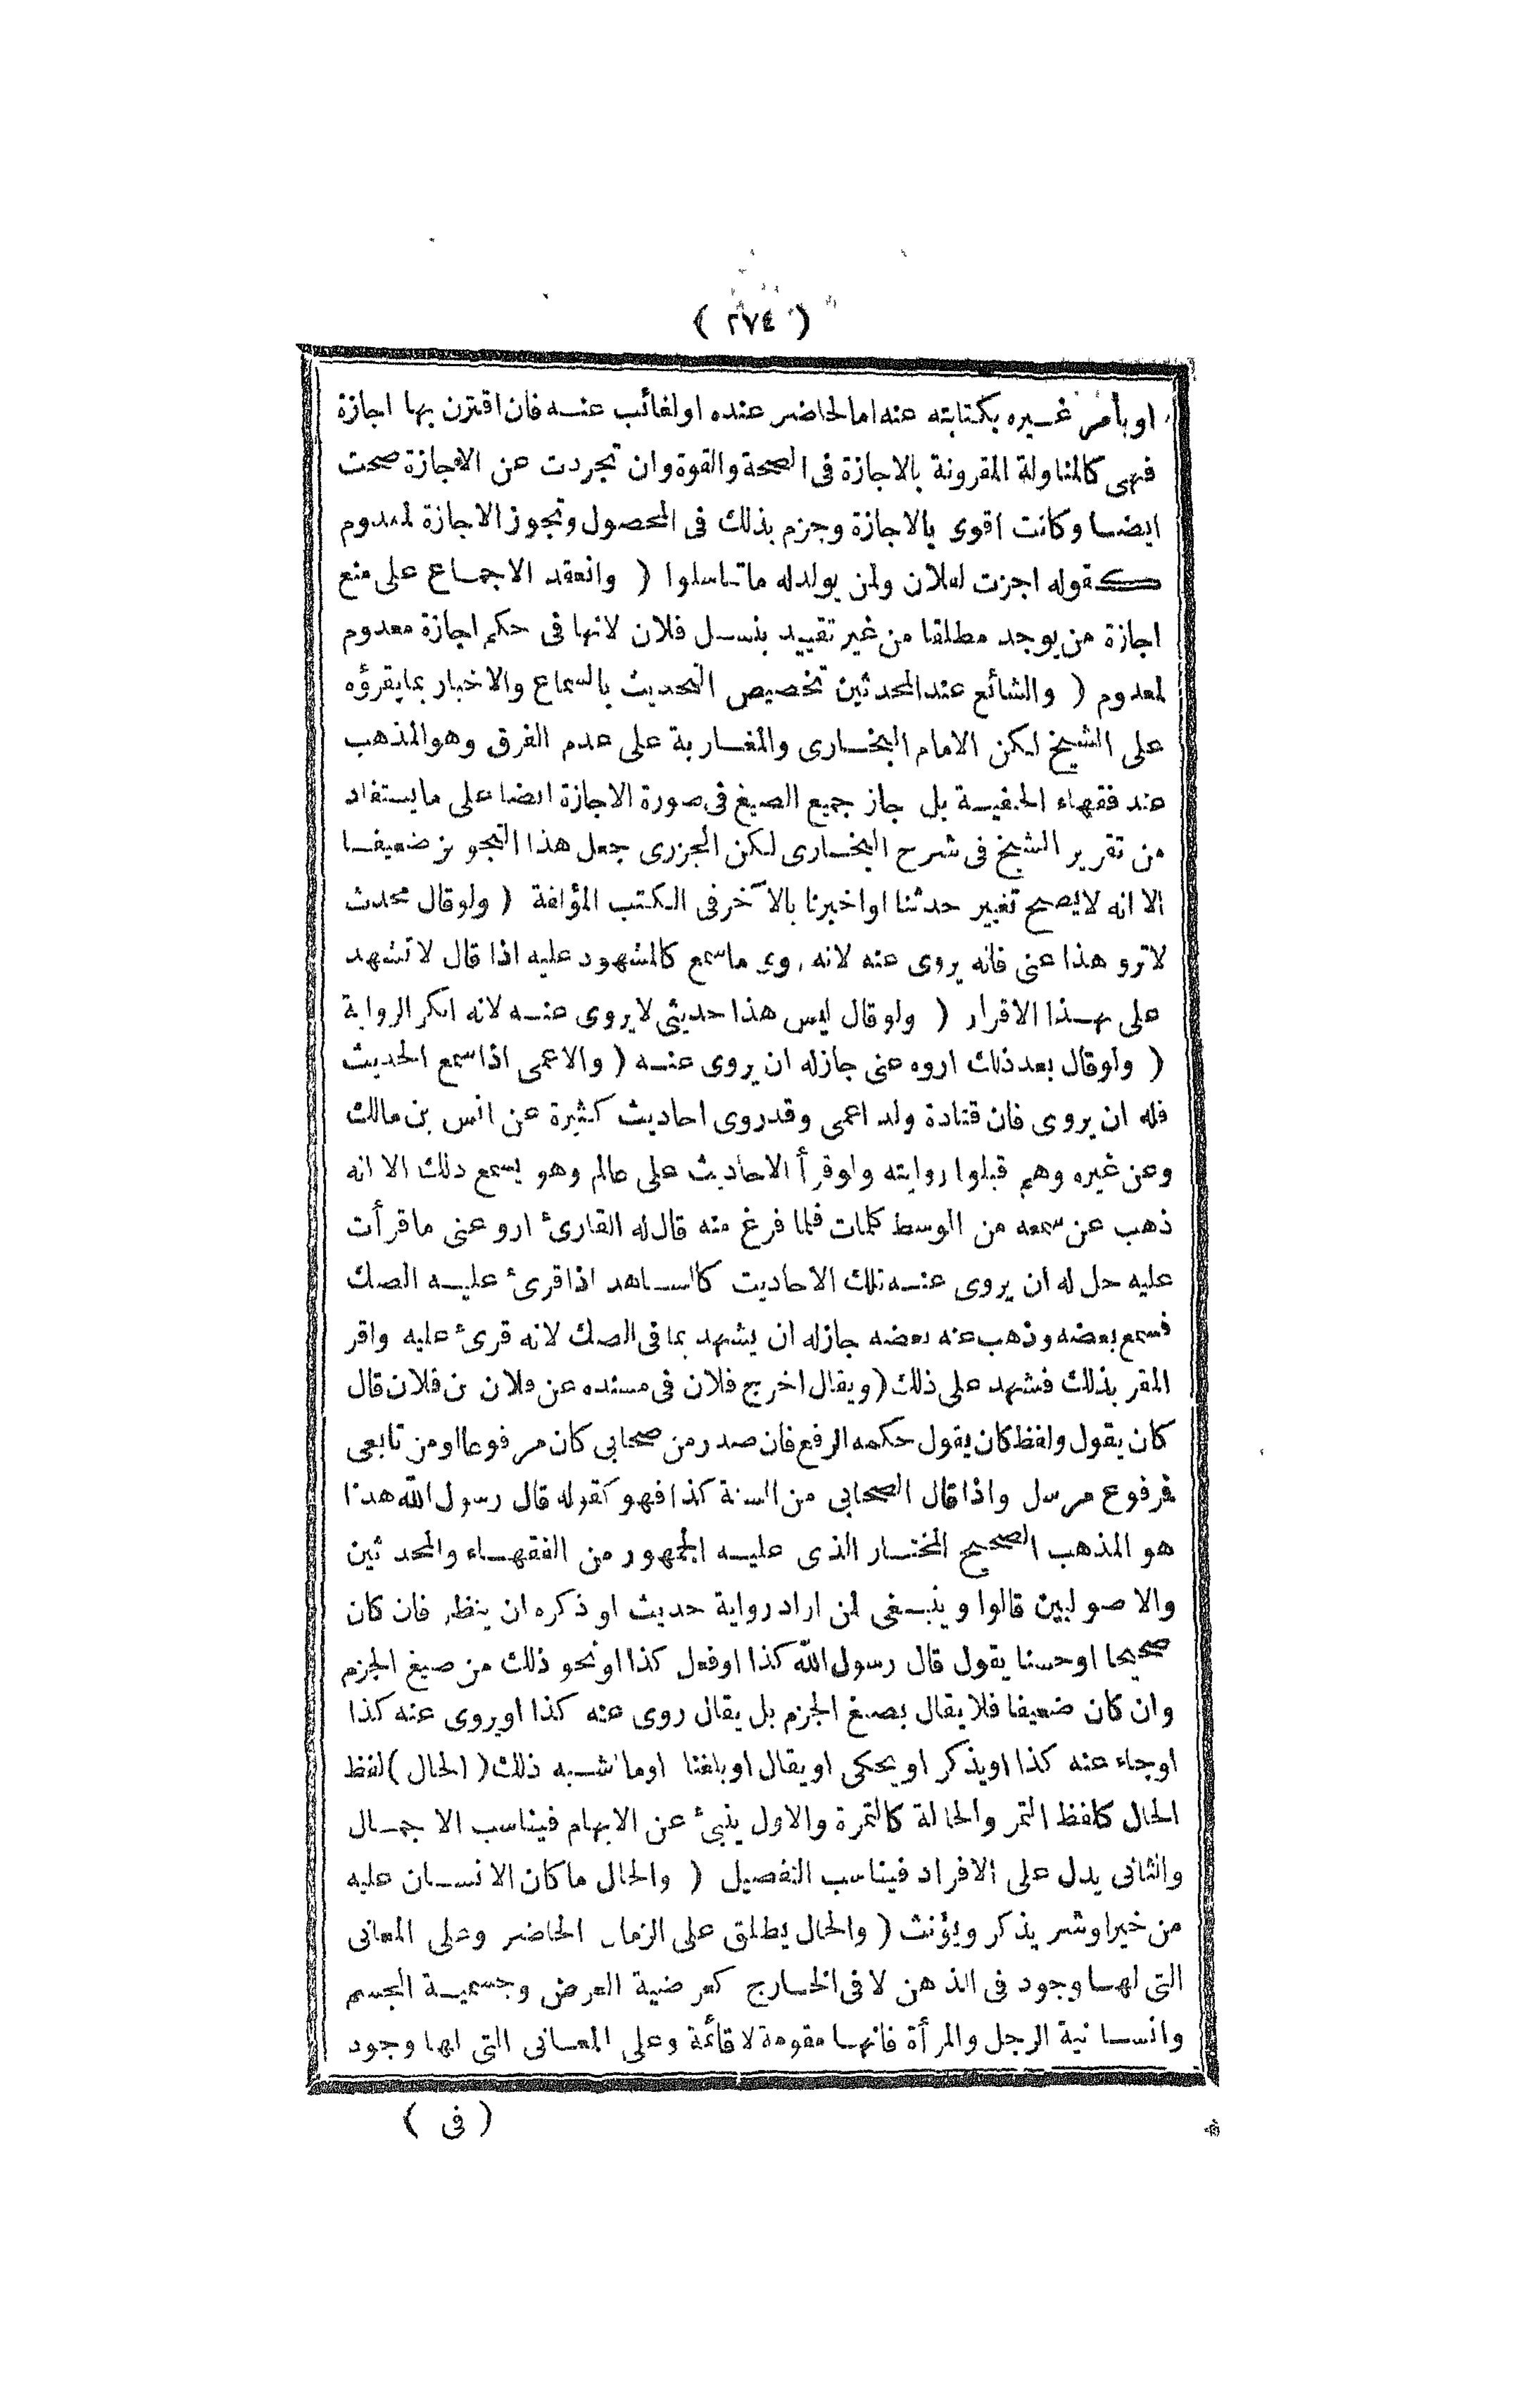 ( ٢٧٤ )
اوبأمر غيره بكتابته عنه اما لحاضر عنده او لغائب عنه فان اقترن بها اجازة
فهى كالمناولة المقرونة بالاجازة فى الصحة والقوة وان تجردت عن الاجازة صحت
ايضا وكانت اقوى بالاجازة وجزم بذلك فى المحصول وتجوز الاجازة لمعدوم
كقوله اجزت لفلان ولمن يولد له ما تناسلوا ( وانعقد الاجماع على منع
اجازة من يوجد مطلقا من غير تقييد بنسل فلان لانها فى حكم اجازة معدوم
لمعدوم ( والشائع عند المحدثين تخصيص التحديث بالسماع والاخبار بما يقرؤه
على الشيخ لكن الامام البخارى والمغاربة على عدم الفرق وهو المذهب
عند فقهاء الحنفية بل جاز جميع الصيغ فى صورة الاجازة ايضا على ما يستفاد
من تقرير الشيخ فى شرح البخارى لكن الجزرى جعل هذا التجويز ضعيفا
الا انه لا يصح تغيير حدثنا او اخبرنا بالآخر فى الكتب المؤلفة ( ولو قال محدث
لا ترو هذا عنى فانه يروى عنه لانه روى ما سمع كالمشهود عليه اذا قال لا تشهد
على بهذا الاقرار ( ولو قال ليس هذا حديثى لا يروى عنه لانه انكر الرواية
( ولو قال بعد ذلك اروه عنى جاز له ان يروى عنه ( والاعمى اذا سمع الحديث
فله ان يروى فان قتادة ولد اعمى وقد روى احاديث كثيرة عن انس بن مالك
وعن غيره وهم قبلوا روايته ولو قرأ الاحاديث على عالم وهو يسمع ذلك الا انه
ذهب عن سمعه من الوسط كلمات فلما فرغ منه قال له القارئ ارو عنى ما قرأت
عليه حل له ان يروى عنه تلك الاحاديث كالشاهد اذا قرئ عليه الصك
فسمع بعضه وذهب عنه بعضه جاز له ان يشهد بما فى الصك لانه قرئ عليه واقر
المقر بذلك فشهد على ذلك ( ويقال اخرج فلان فى مسنده عن فلان بن فلان قال
كان يقول ولفظ كان يقول حكمه الرفع فان صدر من صحابى كان مرفوعا او من تابعى
فمرفوع مرسل واذا قال الصحابى من السنة كذا فهو كقوله قال رسول الله هذا
هو المذهب الصحيح المختار الذى عليه الجمهور من الفقهاء والمحدثين
والاصوليين قالوا وينبغى لمن اراد رواية حديث او ذكره ان ينظر فان كان
صحيحا او حسنا يقول قال رسول الله كذا او فعل كذا او نحو ذلك من صيغ الجزم
وان كان ضعيفا فلا يقال بصيغ الجزم بل يقال روى عنه كذا او يروى عنه كذا
او جاء عنه كذا او يذكر او يحكى او يقال او بلغنا او ما اشبه ذلك ( الحال ) لفظ
الحال كلفظ التمر والحالة كالتمرة والاول ينبئ عن الابهام فيناسب الاجمال
والثانى يدل على الافراد فيناسب التفصيل ( والحال ما كان الانسان عليه
من خير او شر يذكر ويؤنث ( والحال يطلق على الزمان الحاضر وعلى المعانى
التى لها وجود فى الذهن لا فى الخارج كعرضية العرض وجسمية الجسم
وانسانية الرجل والمرأة فانها مقومة لا قائمة وعلى المعانى التى لها وجود
( فى )